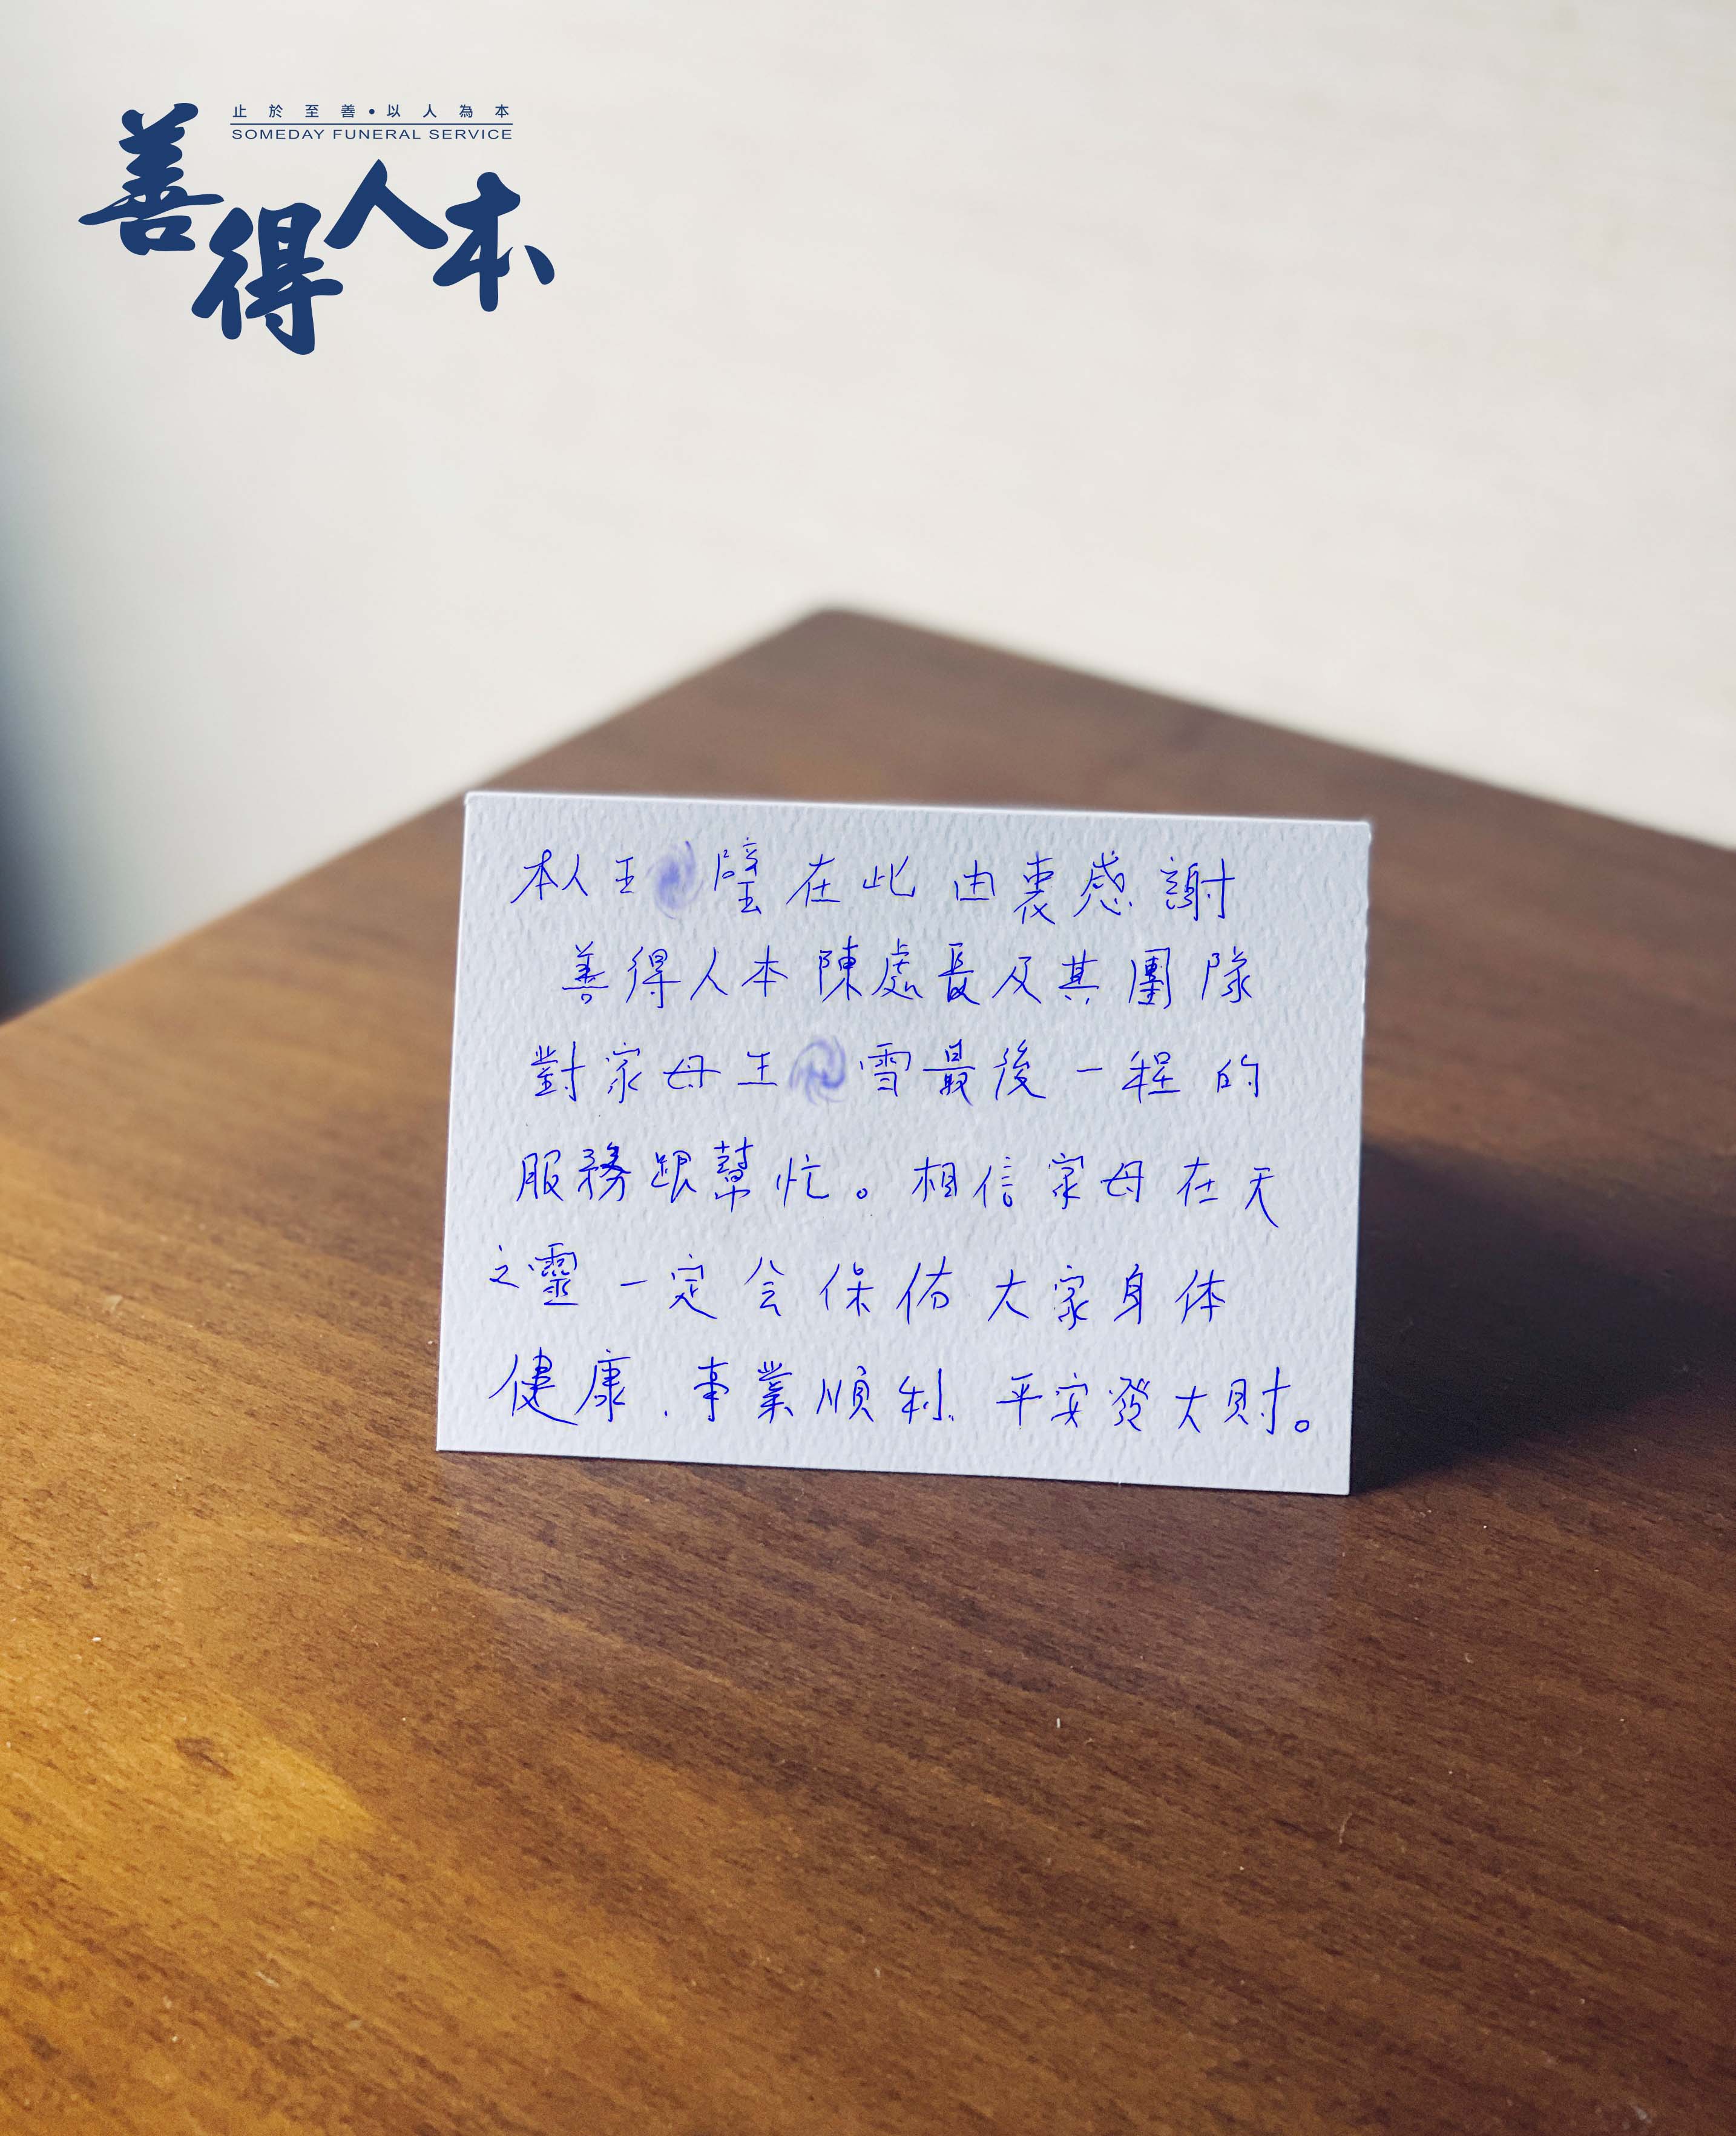 止於至善•以人為本
SOMEDAY FUNERAL SERVICE
善得人本
本人王 璧在此由衷感謝
善得人本陳處長及其團隊
對家母王 雪最後一程的
服務跟幫忙。相信家母在天
之靈一定会保佑大家身体
健康、事業順利、平安發大財。